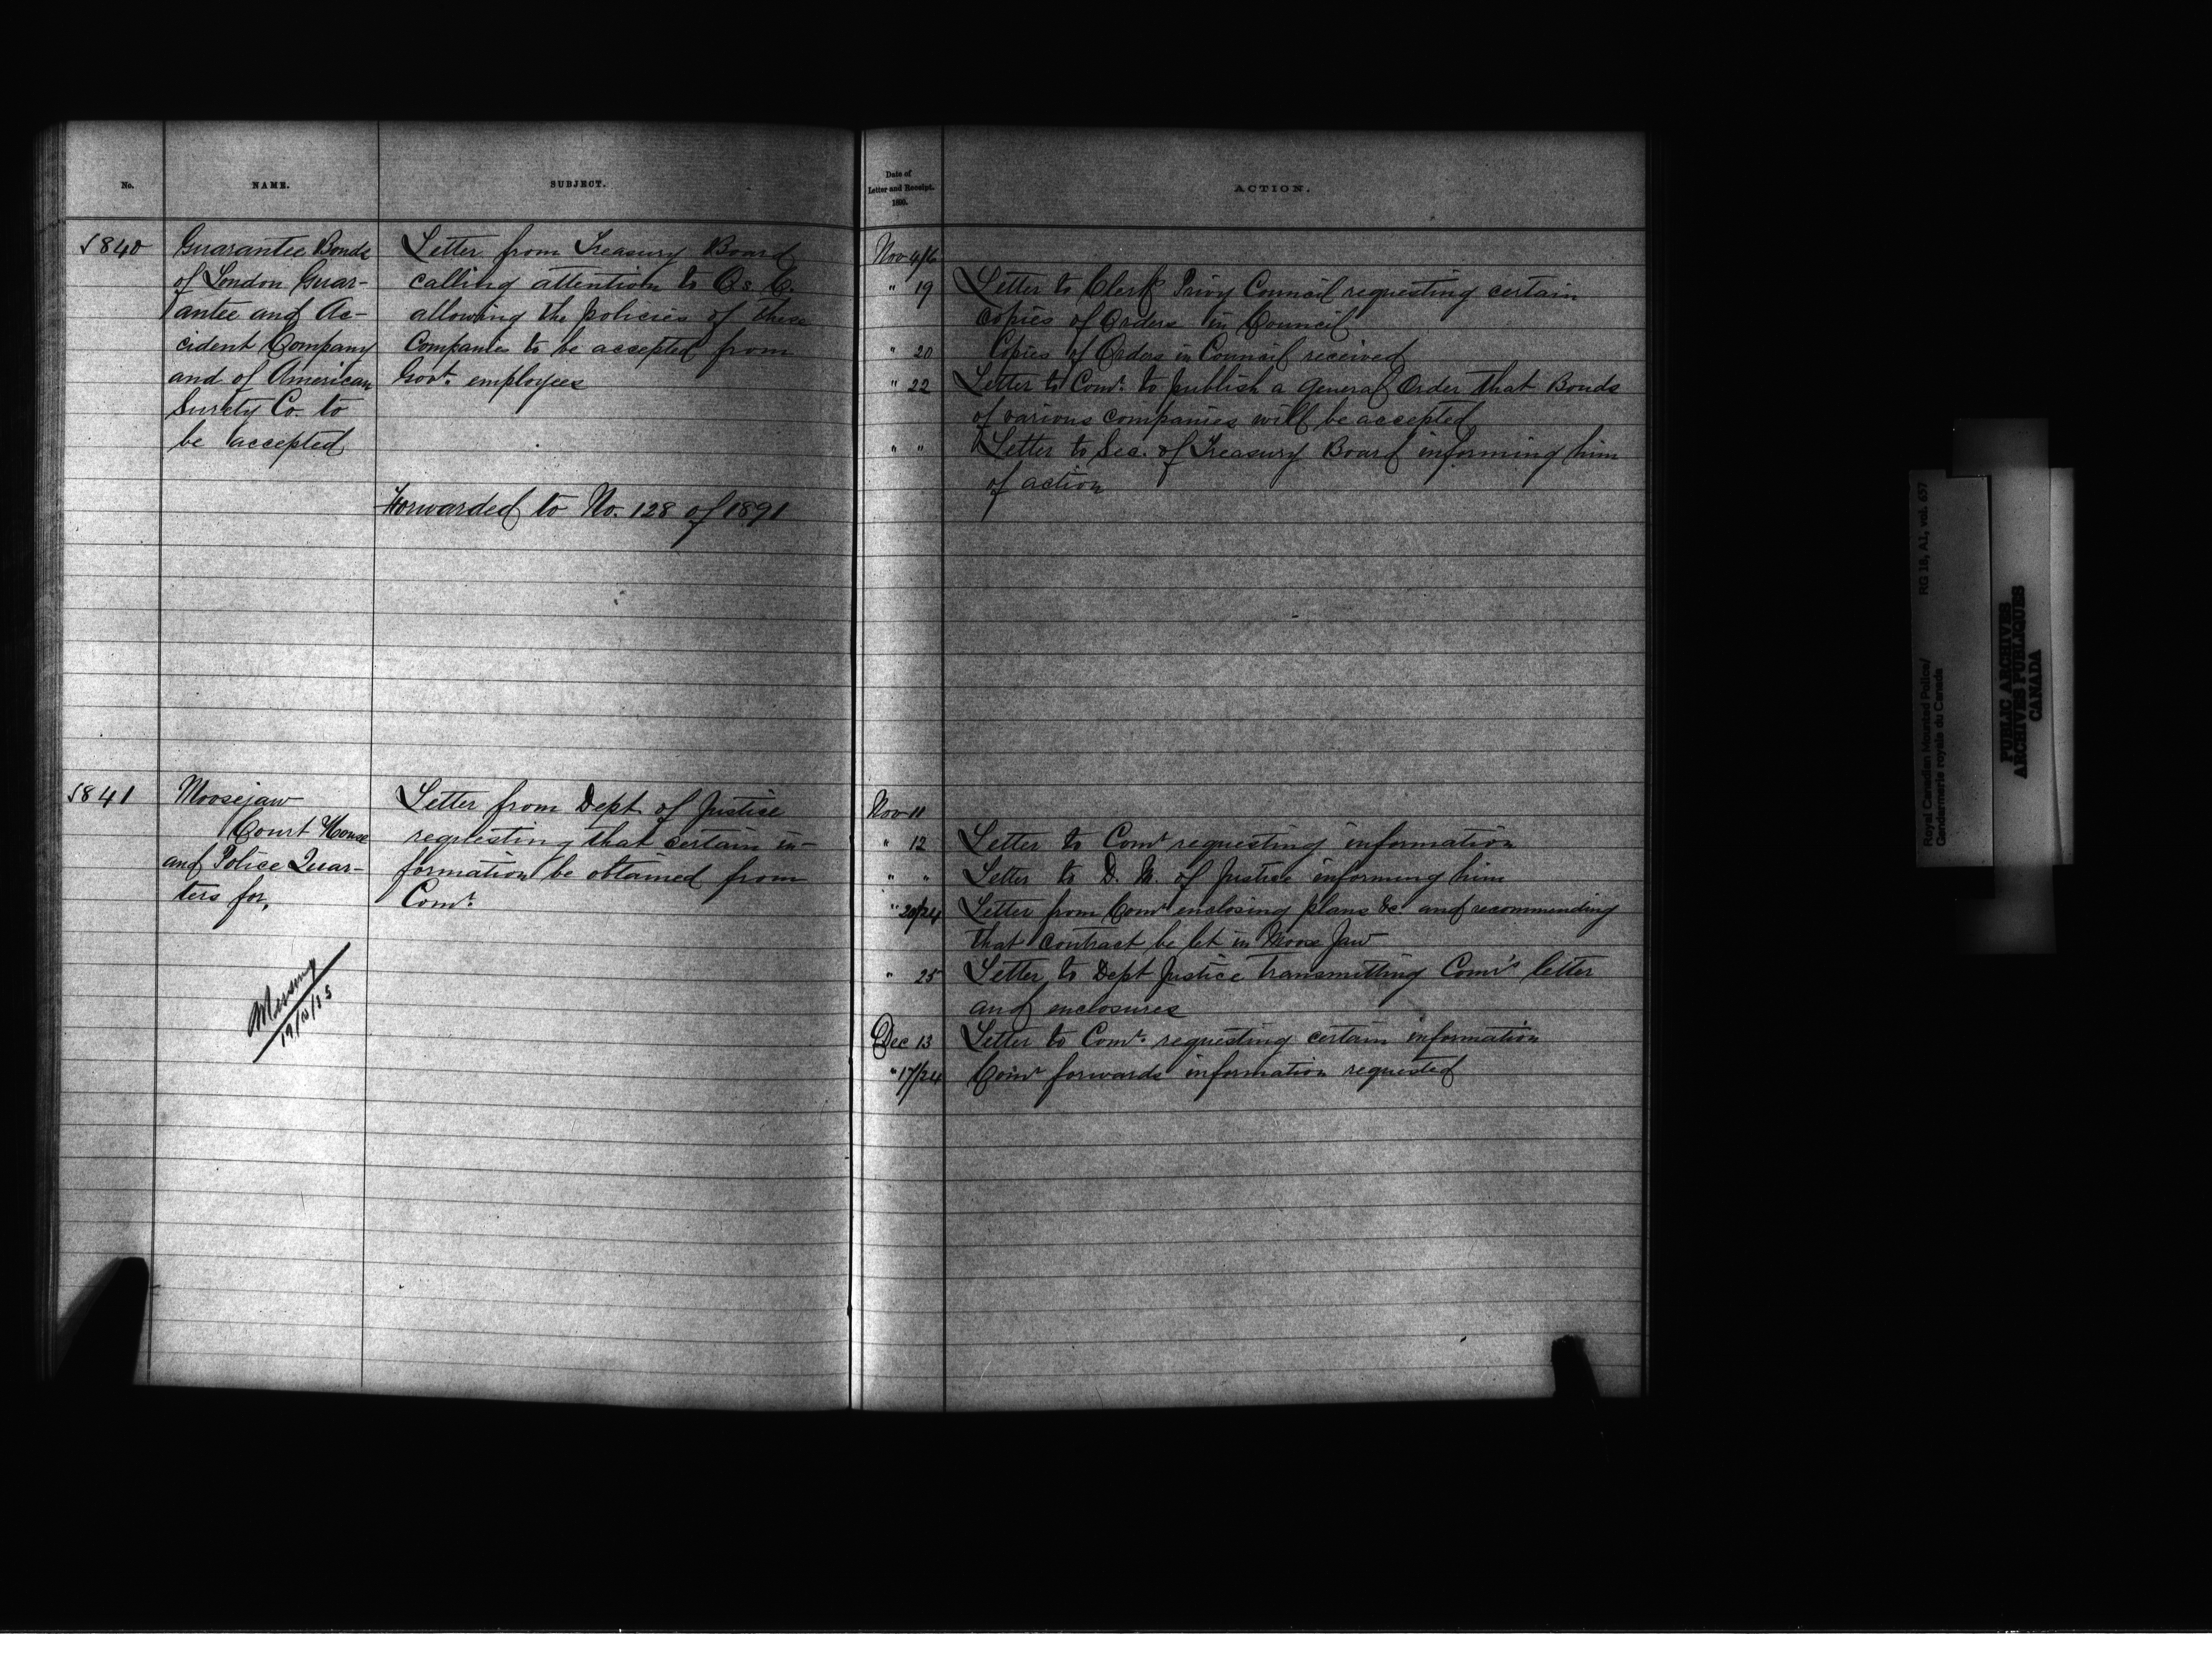 No.
NAME.
SUBJECT.
Date of
Letter and Receipt.
1890.
ACTION.
840
Guarantee Bonds
of London Guar-
antee and Ac-
cident Company
and of American
Surety Co. to
be accepted
Letter from Treasury Board
calling attention to Os. C.
allowing the policies of these
Companies to be accepted from
Govt. employees
Forwarded to No. 128 of 1891
Nov 4/6
" 19 Letter to Clerk Privy Council requesting certain
copies of Orders in Council
" 20 Copies of Orders in Council received
" 22 Letter to Comr. to publish a General Order that Bonds
of various companies will be accepted
" " Letter to Sec. of Treasury Board informing him
of action
841
Moosejaw
Court House
and Police Quar-
ters for,
Letter from Dept. of Justice
requesting that certain in-
formation be obtained from
Comr.
Nov 11
" 12 Letter to Comr requesting information
" " Letter to D. M. of Justice informing him
" 20/24 Letter from Comr enclosing plans &c. and recommending
that contract be let in Moose Jaw
" 25 Letter to Dept Justice transmitting Comr's letter
and enclosures
Dec 13 Letter to Comr. requesting certain information
" 17/24 Comr forwards information requested
Royal Canadian Mounted Police/
Gendarmerie royale du Canada
RG 18, A1, vol. 657
PUBLIC ARCHIVES
ARCHIVES PUBLIQUES
CANADA